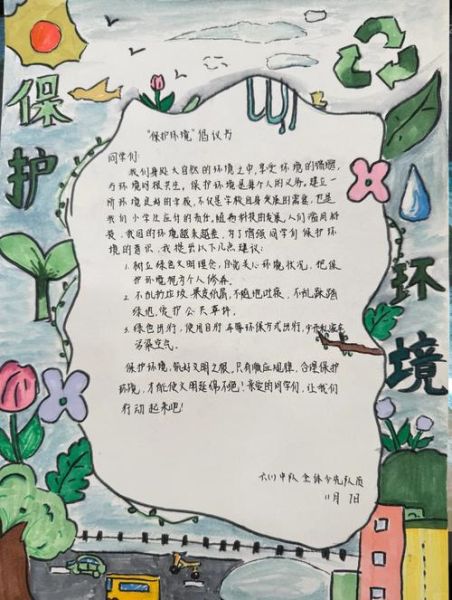 保护
环境
"保护环境"倡议书
同学们:
我们身处大自然的环境之中,享受环境的馈赠,
与环境时根共生,保护环境是每个人的义务。建立一
所环境良好的学校,不仅是学校自身发展的需要,也是
我们小学生应付的责任,随着科技的发展,人们滥用科
技,我国的环境越来越差,为了增强同学们保护环
境的意识,我提出以下几点建议:
1. 树立绿色文明理念,自觉关心环境状况,把保
护环境视为个人修养。
2. 不乱扔垃圾、果皮纸屑,不随地吐痰,不乱踩踏
绿地,爱护公共草坪。
3. 绿色出行,使用自行车等环保方式出行,少开私家车
污染空气。
保护环境,筑好文明之服,只有顺应规律,合理保护
环境,才能使文明延绵不绝!亲爱的同学们,让我们
行动起来吧!
六(1)中队全体少先队员
11月7日